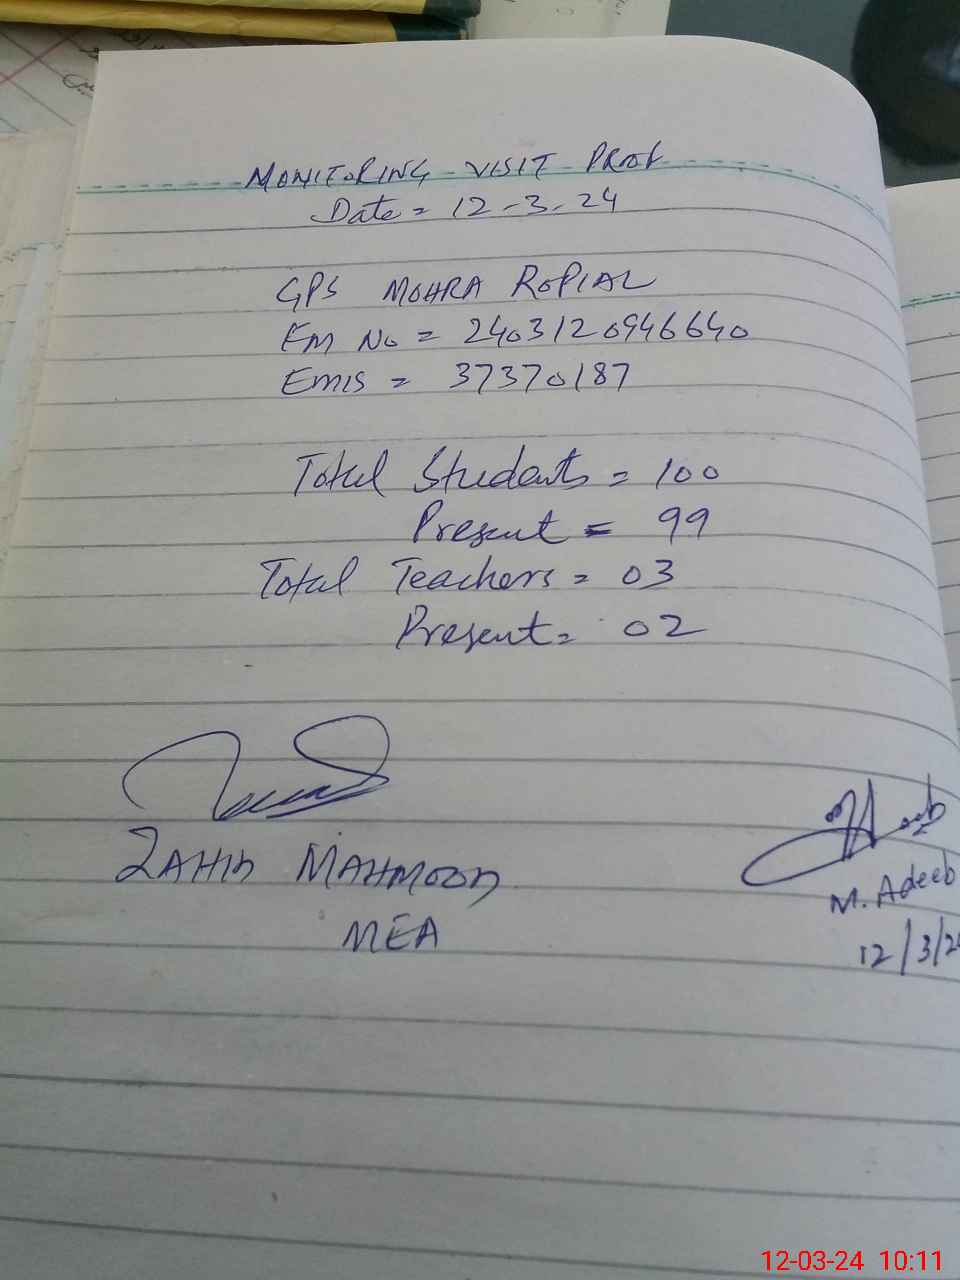 MONITORING VISIT PROOF
Date = 12-3-24
GPS MOHRA ROPIAL
EM No = 2403120946640
EMIS = 37370187
Total Students = 100
Present = 99
Total Teachers = 03
Present = 02
ZAHID MAHMOOD
MEA
M. Adeeb
12/3/2
12-03-24 10:11